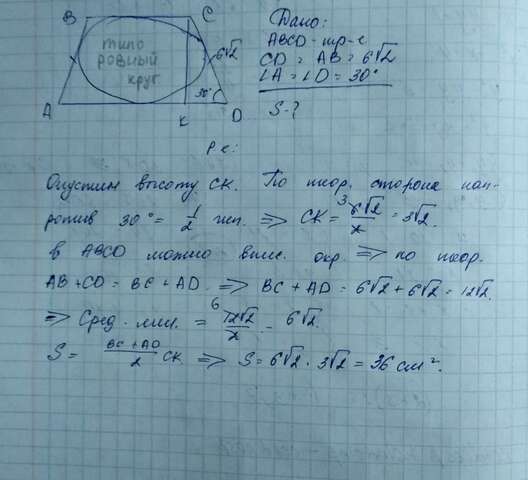 B C
типо
ровный
круг
6√2
30°
A K D
Дано:
ABCD - тр-е
CD = AB = 6√2
∠A = ∠D = 30°
S-?
Р е:
Опустим высоту CK. По теор. сторона нап-
ротив 30° = 1/2 гип. => CK = 6√2/2 3 = 3√2.
в ABCD можно впис. окр => по теор.
AB + CD = BC + AD. => BC + AD = 6√2 + 6√2 = 12√2.
=> Сред. лин. = 12√2/2 6 = 6√2.
S = BC + AD/2 CK => S = 6√2 · 3√2 = 36 см².